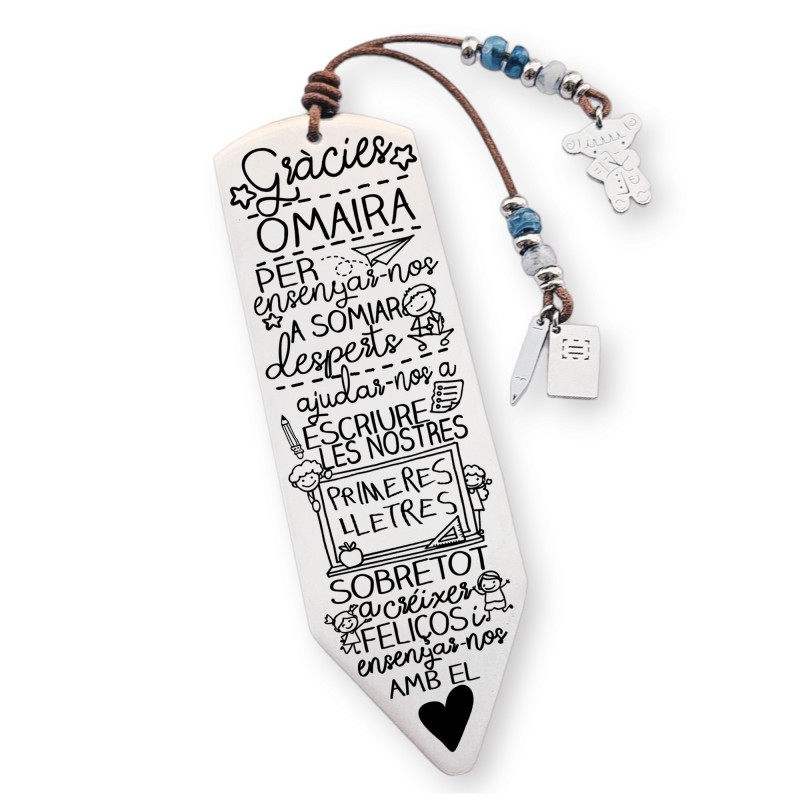 Gràcies
OMAIRA
PER
ensenyar-nos
A SOMIAR
desperts
ajudar-nos a
ESCRIURE
LES NOSTRES
PRIMERES
LLETRES
SOBRETOT
a créixer
FELIÇOS i
ensenyar-nos
AMB EL